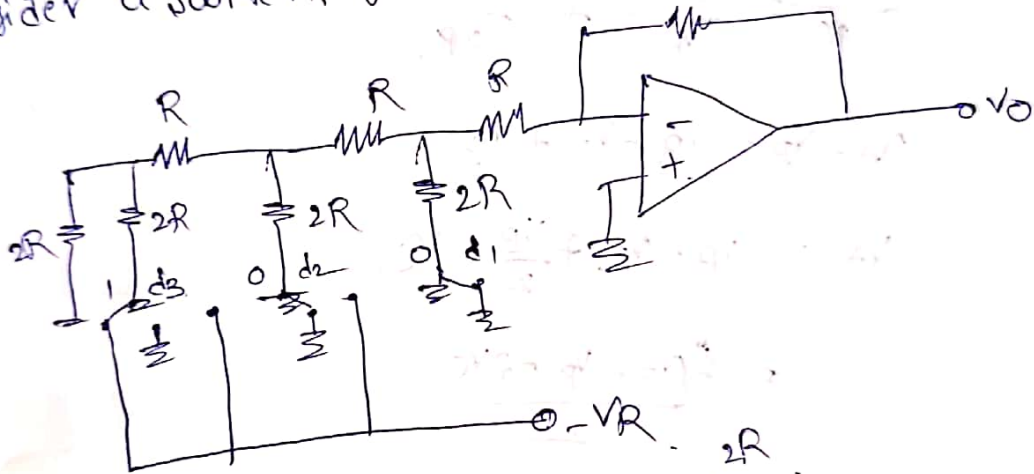 R
R
R
-
+
VO
2R
2R
2R
2R
1
d3
0
d2
0
d1
-VR
2R